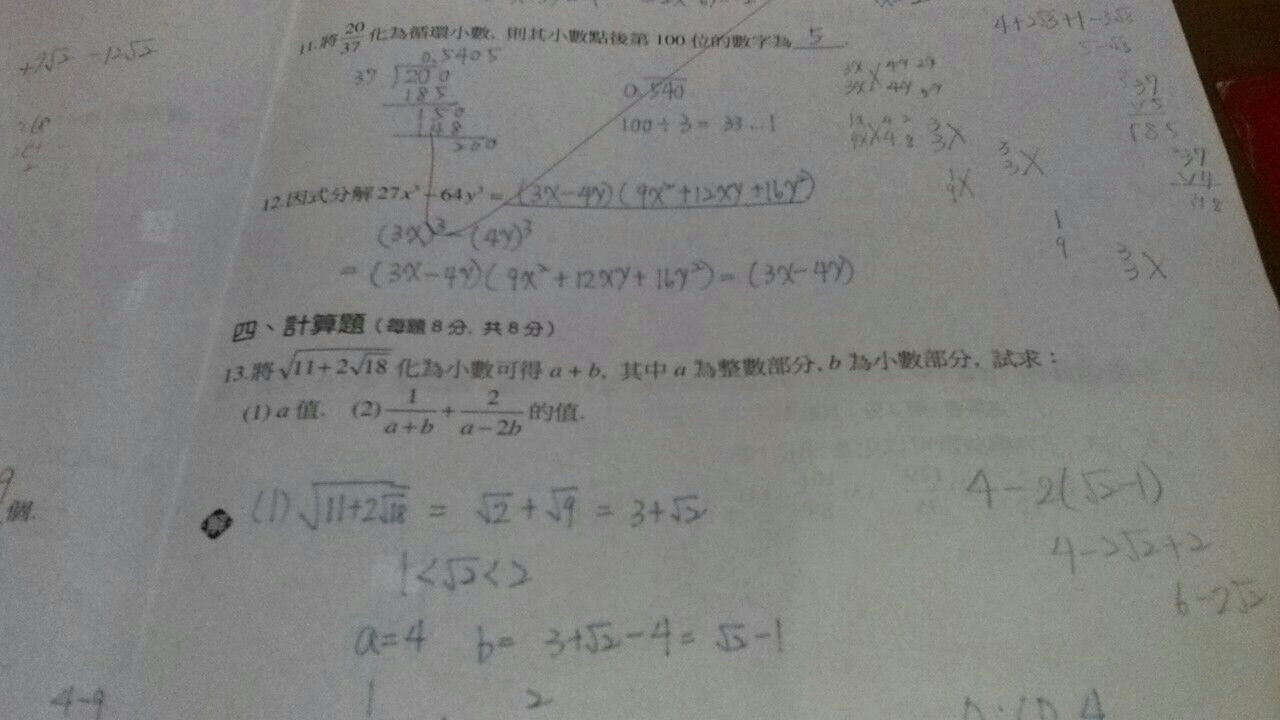 11.將 20/37 化為循環小數, 則其小數點後第 100 位的數字為 5 .
0.5405
37 √200
185
150
148
200
0.540
100÷3= 33...1
12.因式分解 27x³−64y³ = (3x−4y)(9x²+12xy+16y²)
(3x)³−(4y)³
= (3x−4y)(9x²+12xy+16y²) = (3x−4y)
四、計算題 (每題8分, 共8分)
13.將 √(11+2√18) 化為小數可得 a + b, 其中 a 為整數部分, b 為小數部分, 試求:
(1) a 值. (2) 1/(a+b) + 2/(a−2b) 的值.
解 (1) √(11+2√18) = √2 + √9 = 3+√2
1<√2<2
a=4 b= 3+√2−4= √2−1
1 2
4−2(√2−1)
4−2√2+2
6−2√2
4+2√3+1−3√3
5−√3
37
185
37
+7√2 −12√2
個.
4−9